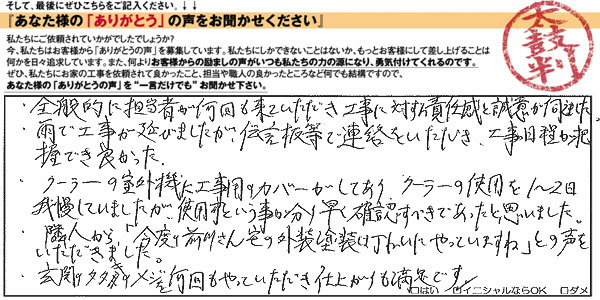 そして、最後にぜひこちらをご記入ください。↓↓
『あなた様の「ありがとう」の声をお聞かせください』
私たちにご依頼されていかがでしたでしょうか?
今、私たちはお客様から「ありがとうの声」を募集しています。私たちにしかできないことはないか、もっとお客様にして差し上げることは
何かを日々追求しています。また、何よりお客様からの励ましの声がいつも私たちの力の源になり、勇気付けてくれるのです。
ぜひ、私たちにお家の工事を依頼されて良かったこと、担当や職人の良かったところなど何でも結構ですので、
あなた様の「ありがとうの声」を“一言だけでも”お聞かせ下さい。
太鼓判
・全般的に担当者が何回も来ていただき工事に対する責任感と誠意が伺えた。
・雨で工事が延びましたが、伝言板等で連絡をいただき、工事日程が把
握でき良かった。
・クーラーの室外機に工事用のカバーがしてあり、クーラーの使用を1~2日
我慢していましたが、使用可という事が分り早く確認すべきであったと思いました。
・隣人から「今度の前川さん宅の外装塗装は丁ねいにやっていますね」との声を
いただきました。
・玄関タタキの目地を何回もやっていただき仕上がりも満足です。
□はい □イニシャルならOK □ダメ